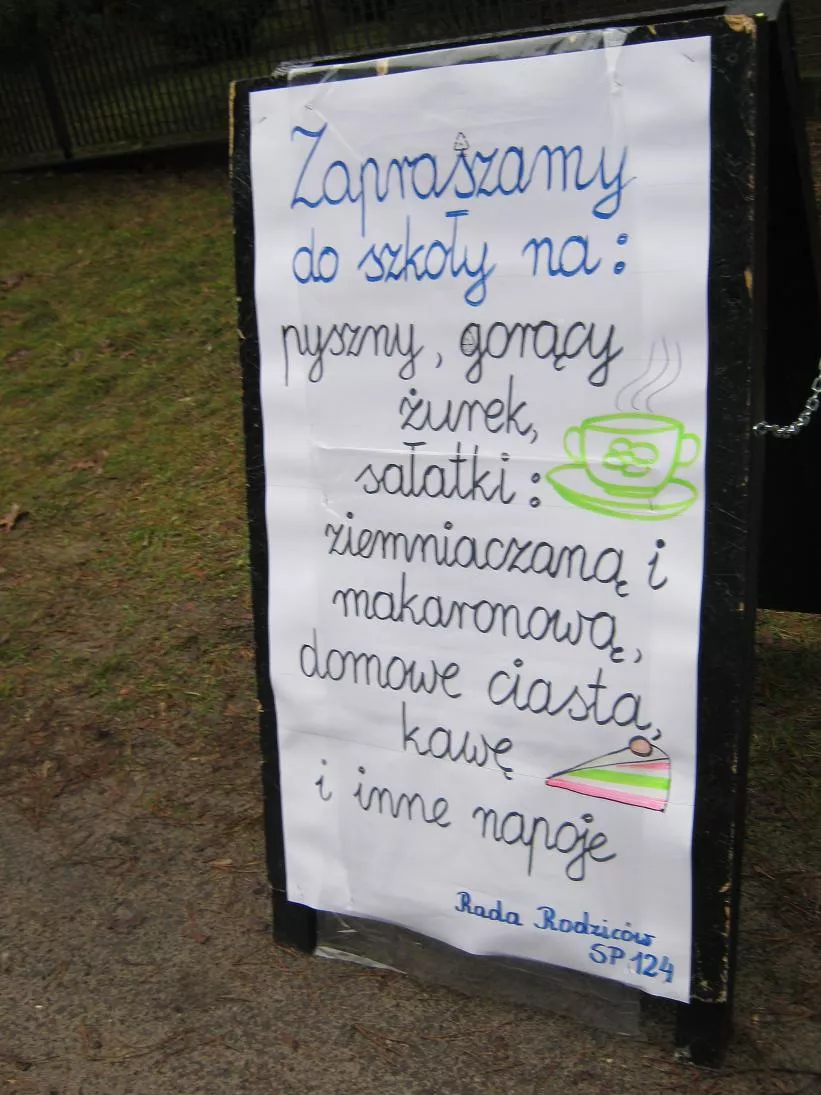 Zapraszamy
do szkoły na:
pyszny, gorący
żurek,
sałatki:
ziemniaczaną i
makaronową,
domowe ciasta,
kawę
i inne napoje
Rada Rodziców
SP 124